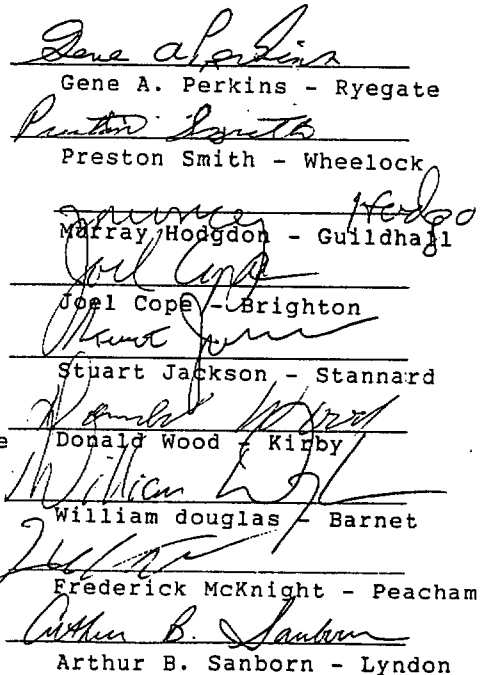 Gene A Perkins
Gene A. Perkins - Ryegate
Preston Smith
Preston Smith - Wheelock
Murray Hodgdon - Guildhall
Joel Cope
Joel Cope - Brighton
Stuart Jackson - Stannard
Donald Wood
e Donald Wood - Kirby
William
William douglas - Barnet
Frederick McKnight - Peacham
Arthur B. Sanborn
Arthur B. Sanborn - Lyndon